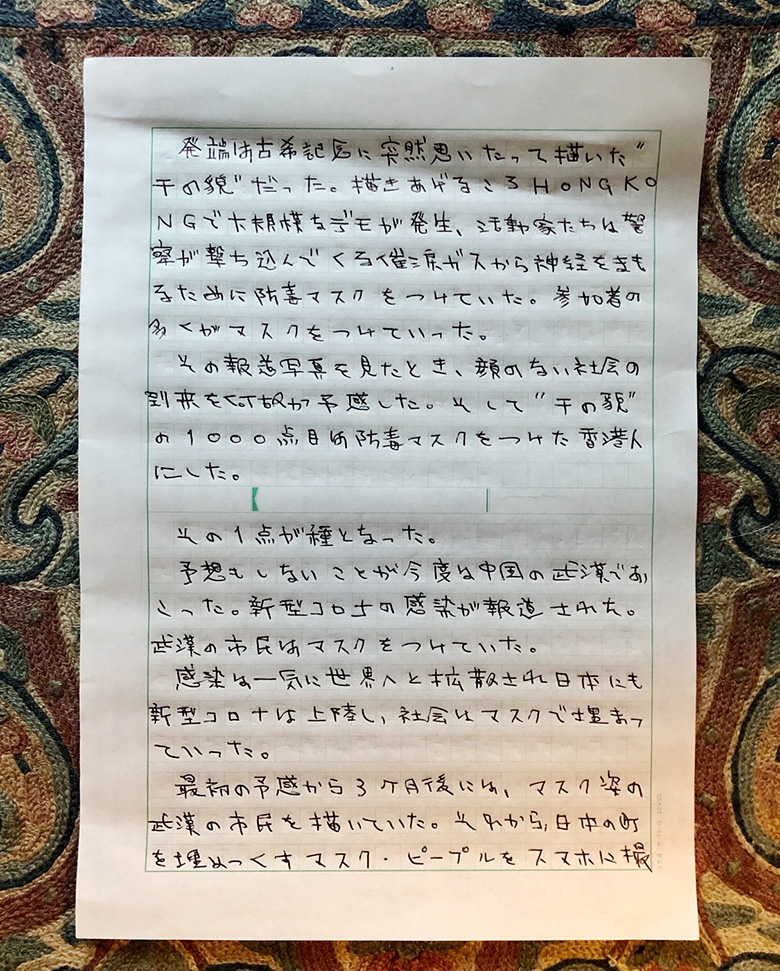 発端は古希記念に突然思いたって描いた“
千の貌”だった。描きあげるころHONGKO
NGで大規模なデモが発生、活動家たちは警
察が撃ち込んでくる催涙ガスから神経をまも
るために防毒マスクをつけていた。参加者の
多くがマスクをつけていった。
その報道写真を見たとき、顔のない社会の
到来を何故か予感した。そして“千の貌”
の1000点目は防毒マスクをつけた香港人
にした。
その1点が種となった。
予想もしないことが今度は中国の武漢でお
こった。新型コロナの感染が報道された。
武漢の市民はマスクをつけていた。
感染は一気に世界へと拡散され日本にも
新型コロナは上陸し、社会はマスクで埋まっ
ていった。
最初の予感から3ケ月後には、マスク姿の
武漢の市民を描いていた。それから、日本の町
を埋めつくすマスク・ピープルをスマホに撮